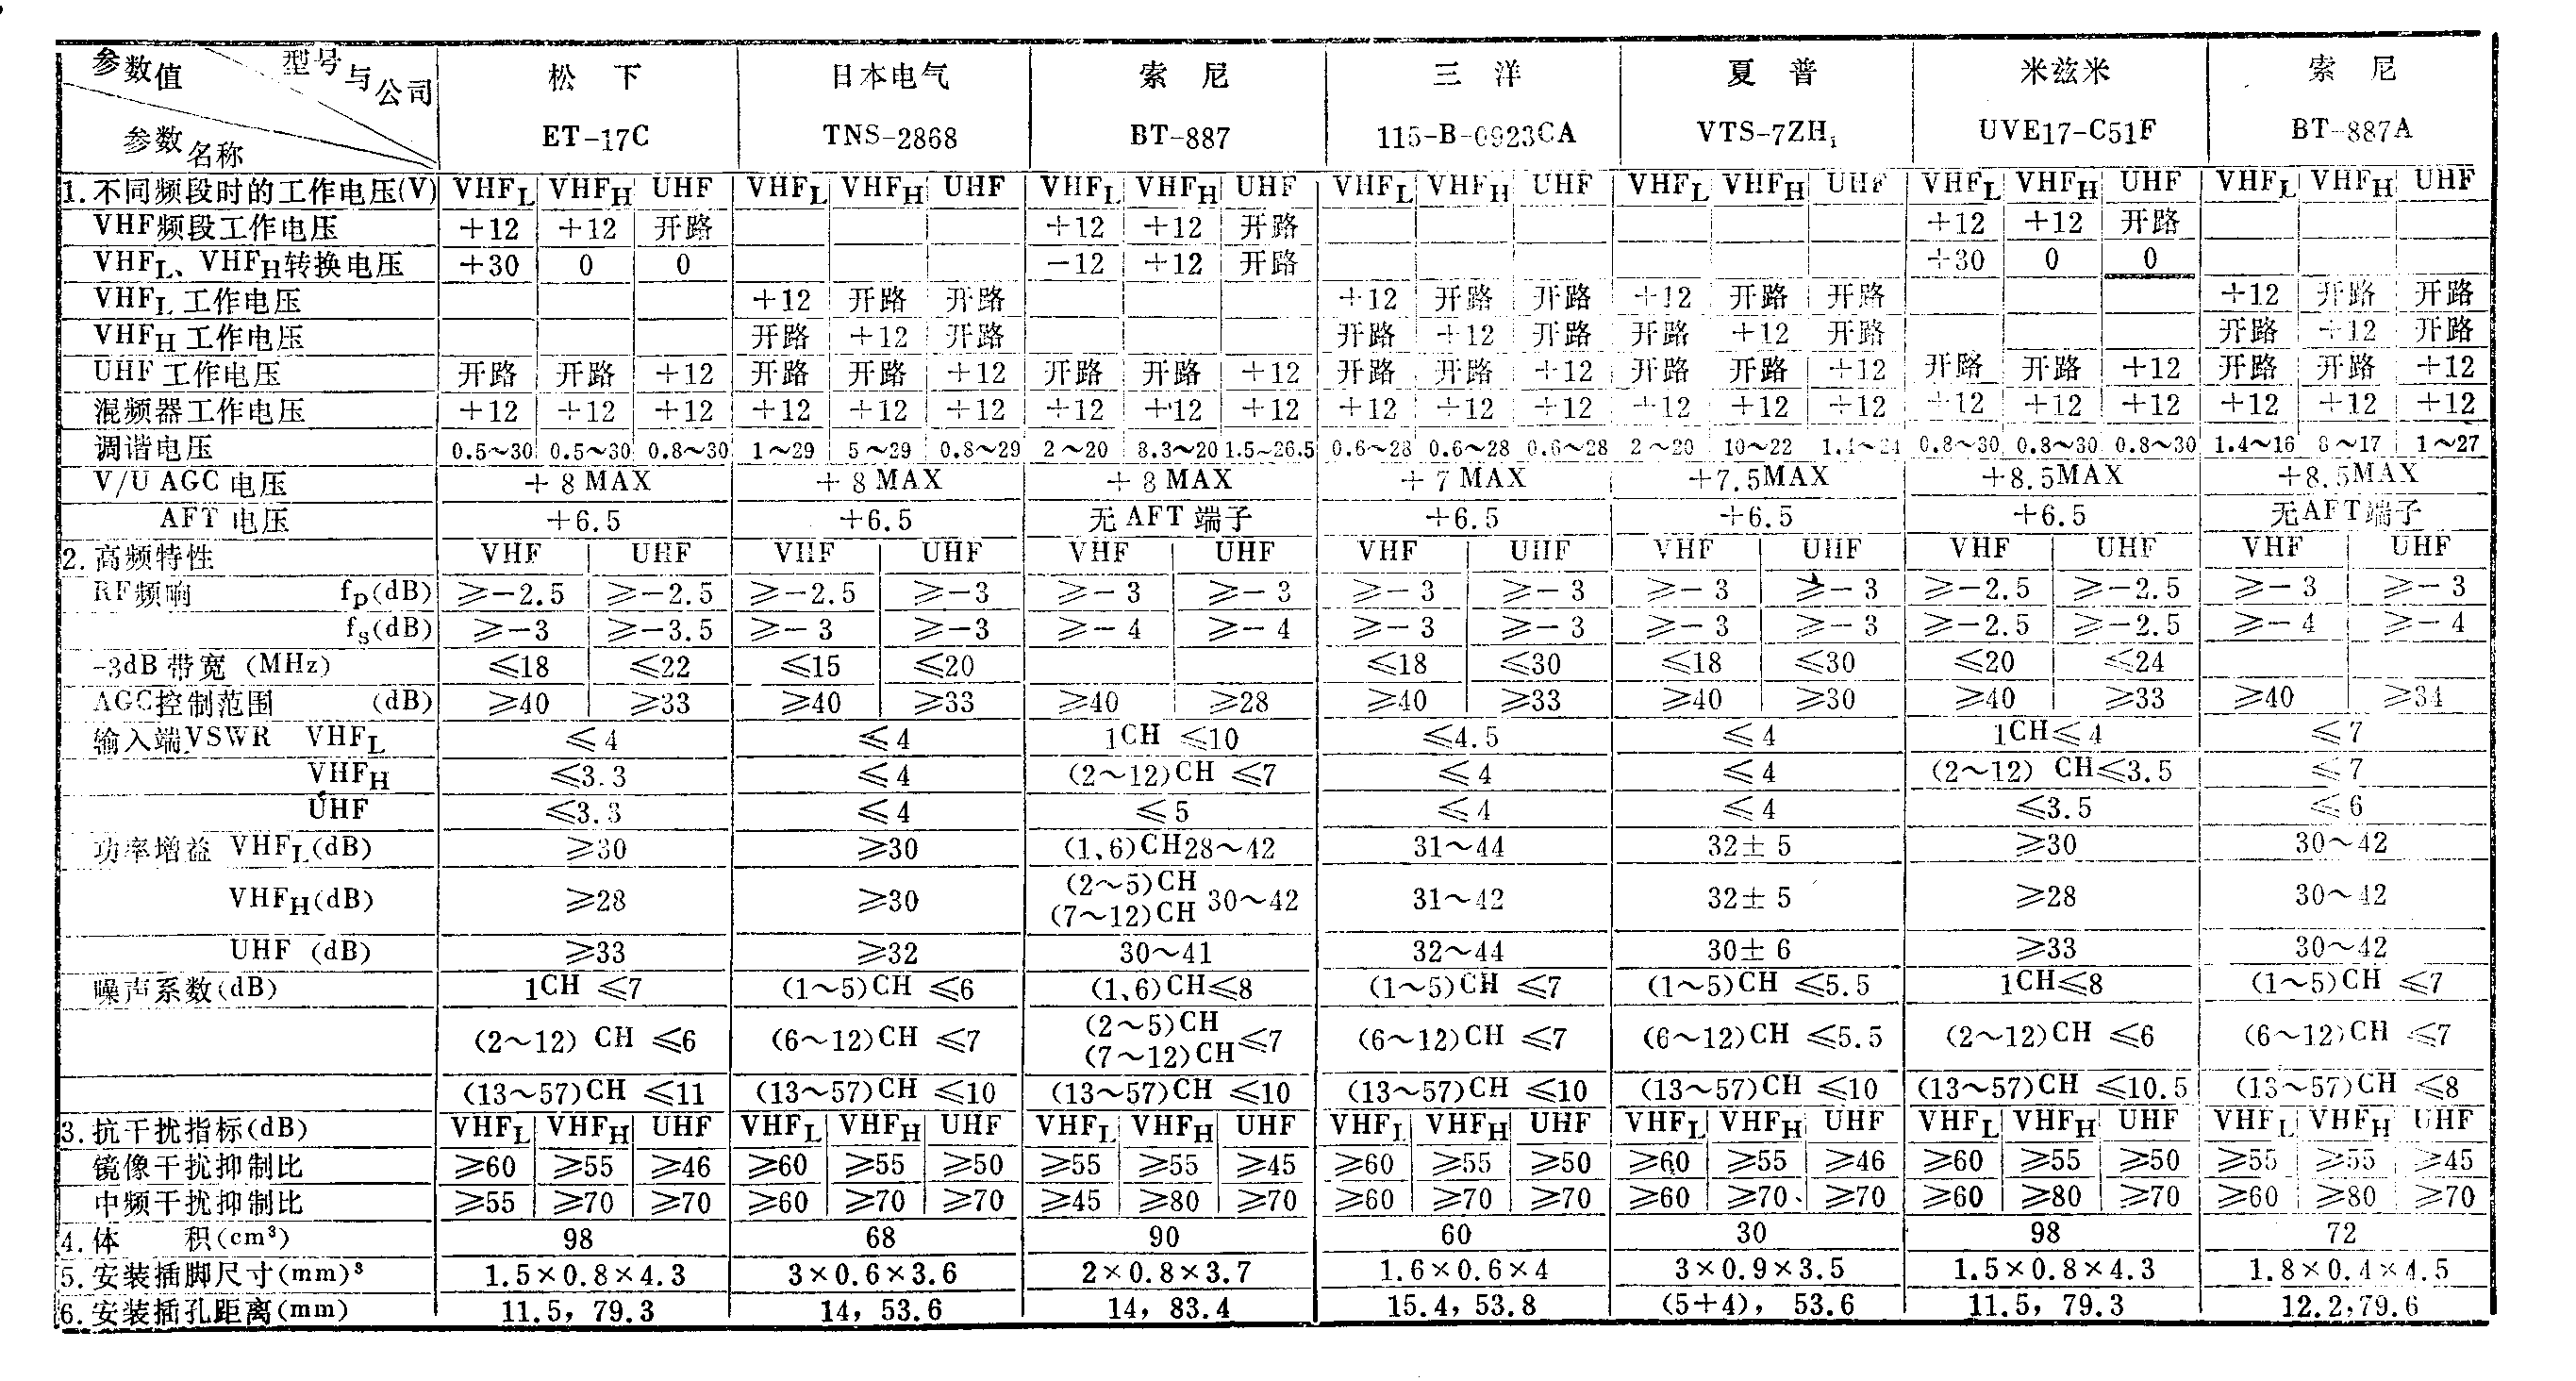 参数值 型号与公司 参数名称 松下 日本电气 索尼 三洋 夏普 米兹米 索尼
ET-17C TNS-2868 BT-887 115-B-0923CA VTS-7ZH₁ UVE17-C51F BT-887A
1.不同频段时的工作电压(V) VHFL VHFH UHF VHFL VHFH UHF VHFL VHFH UHF VHFL VHFH UHF VHFL VHFH UHF VHFL VHFH UHF VHFL VHFH UHF
VHF频段工作电压 +12 +12 开路 +12 +12 开路 +12 +12 开路
VHFL、VHFH转换电压 +30 0 0 -12 +12 开路 +30 0 0
VHFL工作电压 +12 开路 开路 +12 开路 开路 +12 开路 开路 +12 开路 开路
VHFH工作电压 开路 +12 开路 开路 +12 开路 开路 +12 开路 开路 +12 开路
UHF工作电压 开路 开路 +12 开路 开路 +12 开路 开路 +12 开路 开路 +12 开路 开路 +12 开路 开路 +12 开路 开路 +12
混频器工作电压 +12 +12 +12 +12 +12 +12 +12 +12 +12 +12 +12 +12 +12 +12 +12 +12 +12 +12 +12 +12 +12
调谐电压 0.5~30 0.5~30 0.8~30 1~29 5~29 0.8~29 2~20 8.3~20 1.5~26.5 0.6~28 0.6~28 0.6~28 2~20 10~22 0.8~30 0.8~30 0.8~30 1.4~16 8~17 1~27
V/U AGC电压 +8MAX +8MAX +8MAX +7MAX +7.5MAX +8.5MAX +8.5MAX
AFT电压 +6.5 +6.5 无AFT端子 +6.5 +6.5 +6.5 无AFT端子
2.高频特性 VHF UHF VHF UHF VHF UHF VHF UHF VHF UHF VHF UHF VHF UHF
RF频响 fp(dB) ≥-2.5 ≥-2.5 ≥-2.5 ≥-3 ≥-3 ≥-3 ≥-3 ≥-3 ≥-3 ≥-3 ≥-2.5 ≥-2.5 ≥-3 ≥-3
fs(dB) ≥-3 ≥-3.5 ≥-3 ≥-3 ≥-4 ≥-4 ≥-3 ≥-3 ≥-3 ≥-3 ≥-2.5 ≥-2.5 ≥-4 ≥-4
-3dB带宽(MHz) ≤18 ≤22 ≤15 ≤20 ≤18 ≤30 ≤18 ≤30 ≤20 ≤24
AGC控制范围 (dB) ≥40 ≥33 ≥40 ≥33 ≥40 ≥28 ≥40 ≥33 ≥40 ≥30 ≥40 ≥33 ≥40 ≥34
输入端VSWR VHFL ≤4 ≤4 1CH ≤10 ≤4.5 ≤4 1CH≤4 ≤7
VHFH ≤3.3 ≤4 (2~12)CH ≤7 ≤4 ≤4 (2~12) CH≤3.5 ≤7
UHF ≤3.3 ≤4 ≤5 ≤4 ≤4 ≤3.5 ≤6
功率增益 VHFL(dB) ≥30 ≥30 (1、6)CH28~42 31~44 32±5 ≥30 30~42
VHFH(dB) ≥28 ≥30 (2~5)CH (7~12)CH 30~42 31~42 32±5 ≥28 30~42
UHF (dB) ≥33 ≥32 30~41 32~44 30±6 ≥33 30~42
噪声系数(dB) 1CH ≤7 (1~5)CH ≤6 (1、6)CH≤8 (1~5)CH ≤7 (1~5)CH ≤5.5 1CH≤8 (1~5)CH ≤7
(2~12) CH ≤6 (6~12)CH ≤7 (2~5)CH (7~12)CH ≤7 (6~12)CH ≤7 (6~12)CH ≤5.5 (2~12)CH ≤6 (6~12)CH ≤7
(13~57)CH ≤11 (13~57)CH ≤10 (13~57)CH ≤10 (13~57)CH ≤10 (13~57)CH ≤10 (13~57)CH ≤10.5 (13~57)CH ≤8
3.抗干扰指标(dB) VHFL VHFH UHF VHFL VHFH UHF VHFL VHFH UHF VHFL VHFH UHF VHFL VHFH UHF VHFL VHFH UHF VHFL VHFH UHF
镜像干扰抑制比 ≥60 ≥55 ≥46 ≥60 ≥55 ≥50 ≥55 ≥55 ≥45 ≥60 ≥55 ≥50 ≥60 ≥55 ≥46 ≥60 ≥55 ≥50 ≥55 ≥55 ≥45
中频干扰抑制比 ≥55 ≥70 ≥70 ≥60 ≥70 ≥70 ≥45 ≥80 ≥70 ≥60 ≥70 ≥70 ≥60 ≥70 ≥70 ≥60 ≥80 ≥70 ≥60 ≥80 ≥70
4.体 积(cm³) 98 68 90 60 30 98 72
5.安装插脚尺寸(mm)³ 1.5×0.8×4.3 3×0.6×3.6 2×0.8×3.7 1.6×0.6×4 3×0.9×3.5 1.5×0.8×4.3 1.8×0.4×4.5
6.安装插孔距离(mm) 11.5, 79.3 14, 53.6 14, 83.4 15.4, 53.8 (5+4), 53.6 11.5, 79.3 12.2, 79.6